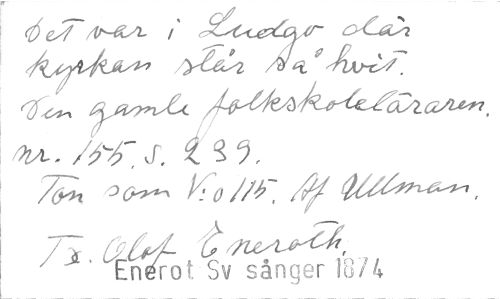 Det var i Ludgo där
kyrkan står så hvit.
Den gamle folkskoleläraren.
nr. 155. s. 239.
Ton som V:o 115. Af Ullman.
Tx. Olof Eneroth.
Enerot Sv sånger 1874